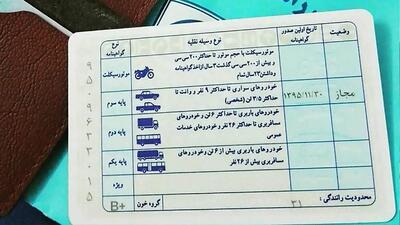 وضعیت
تاریخ اولین صدور گواهینامه
نوع وسیله نقلیه
نوع گواهینامه
موتورسیکلت با حجم موتور تا حداکثر ۲۰۰ سی سی
و بیش از ۲۰۰ سی سی گذشت ۳ سال از اخذ گواهینامه
وداشتن ۲۳ سال تمام
موتورسیکلت
مجاز
۱۳۹۵/۱۱/۳۰
خودروهای سواری تا حداکثر ۹ نفر و وانت تا
حداکثر ۳/۵ تن (شخصی)
پایه سوم
خودروهای باربری تا حداکثر ۶ تن و خودروهای
مسافربری تا حداکثر ۲۶ نفر و خودروهای خدمات
عمومی
پایه دوم
خودروهای باربری بیش از ۶ تن و خودروهای
مسافربری بیش از ۲۶ نفر
پایه یکم
ویژه
محدودیت رانندگی :
۳۱
گروه خون
B+